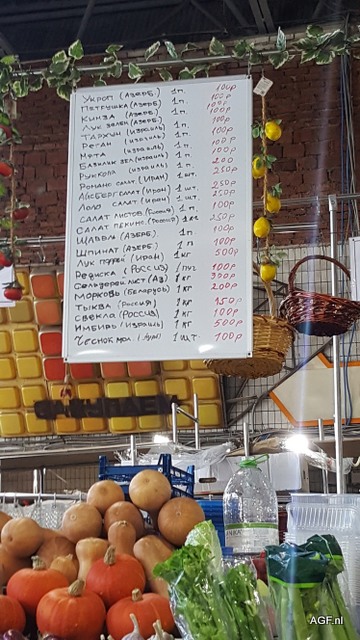 Укроп (Азерб) 1п. 100р
Петрушка (Азерб) 1п. 100р
Кинза (Азерб) 1п. 100р
Лук зелен (Азерб) 1п. 100р
Тархун (Израиль) 1п. 100р
Реган (Израиль) 1п. 100р
Мята (Израиль) 1п. 100р
Базилик зел (Израиль) 1п. 200
Руккола (Израиль) 1п. 250р
Романо салат (Иран) 1шт.
Айсберг салат (Иран) 1шт. 250р
Лоло салат (Иран) 1шт. 250р
Салат листов (Россия) 1п. 100р
Салат пекинс. (Россия) 1кг 250р
Щавель (Азерб) 1п. 100р
Шпинат (Азерб) 1п 100р
Лук порей (Иран) 1кг 500р
Редиска (Россия) 1пуч 100р
Сельдерей лист (Аз) 1кг 300р
Морковь (Беларусь) 1кг 200р
Тыква (Россия) 1кг 150р
Свекла (Россия) 1кг 100р
Имбирь (Израиль) 1кг 500р
Чеснок мол. 1шт 100р
AGF.nl